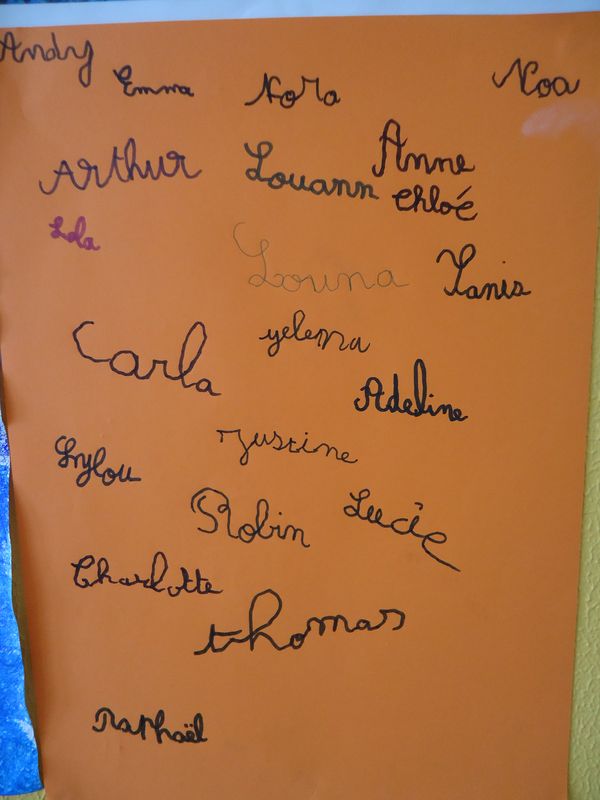 Andy
Emma Nora Noa
Arthur Louann Anne
Chloé
Lola
Louna Yanis
Carla yelena
Adeline
Justine
Lylou
Robin Lucie
Charlotte
thomas
Raphaël